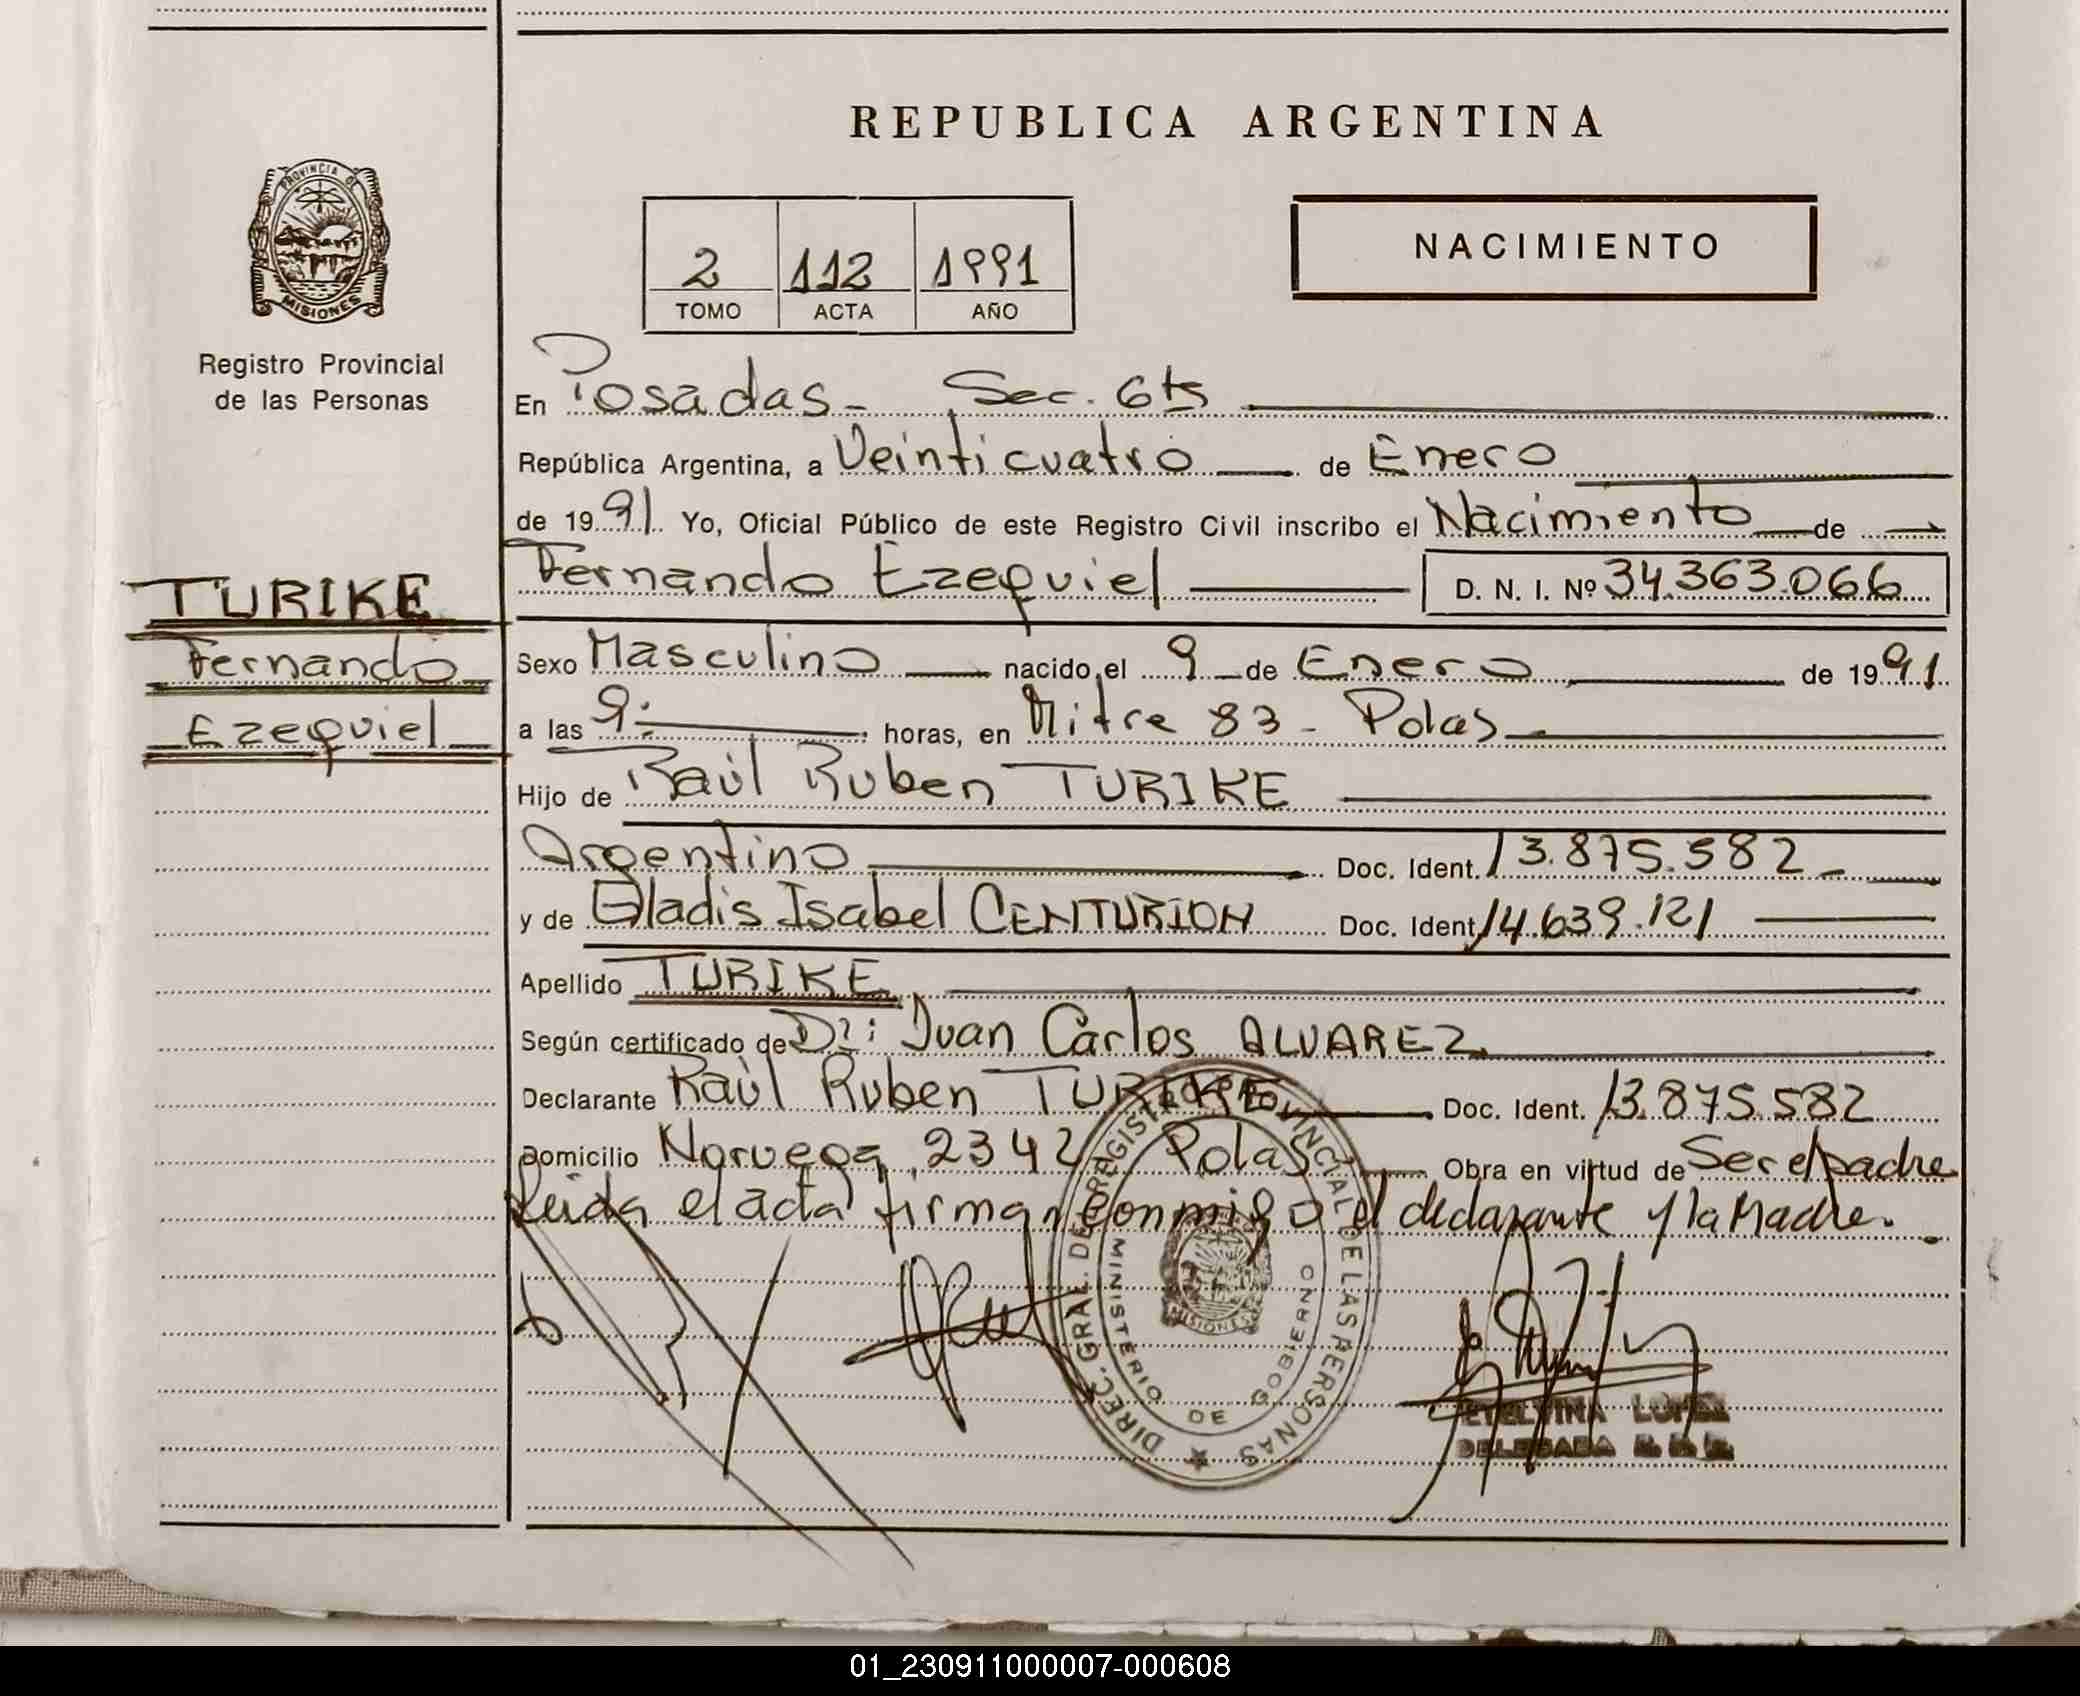 REPUBLICA ARGENTINA
PROVINCIA DE
MISIONES
Registro Provincial
de las Personas
2 112 1991
TOMO ACTA AÑO
NACIMIENTO
En Posadas - Sec. 6ta
República Argentina, a Veinticuatro de Enero
de 1991 Yo, Oficial Público de este Registro Civil inscribo el Nacimiento de
Fernando Ezequiel D. N. I. Nº 34.363.066
TURIKE
Fernando
Ezequiel
Sexo Masculino nacido el 9 de Enero de 1991
a las 9: horas, en Mitre 83 - Pdas
Hijo de Raúl Ruben TURIKE
Argentino Doc. Ident. 13.875.582
y de Gladis Isabel CENTURION Doc. Ident. 14.639.121
Apellido TURIKE
Según certificado de Dr: Juan Carlos ALVAREZ
Declarante Raúl Ruben TURIKE Doc. Ident. 13.875.582
Domicilio Noruega 2342 Pdas Obra en virtud de Ser el padre
Leida el acta firman conmigo el declarante y la Madre.
DIREC. GRAL. DEL REGISTRO PROVINCIAL DE LAS PERSONAS
MINISTERIO DE GOBIERNO
MISIONES
ETELVINA LOPEZ
DELEGADA
01_230911000007-000608